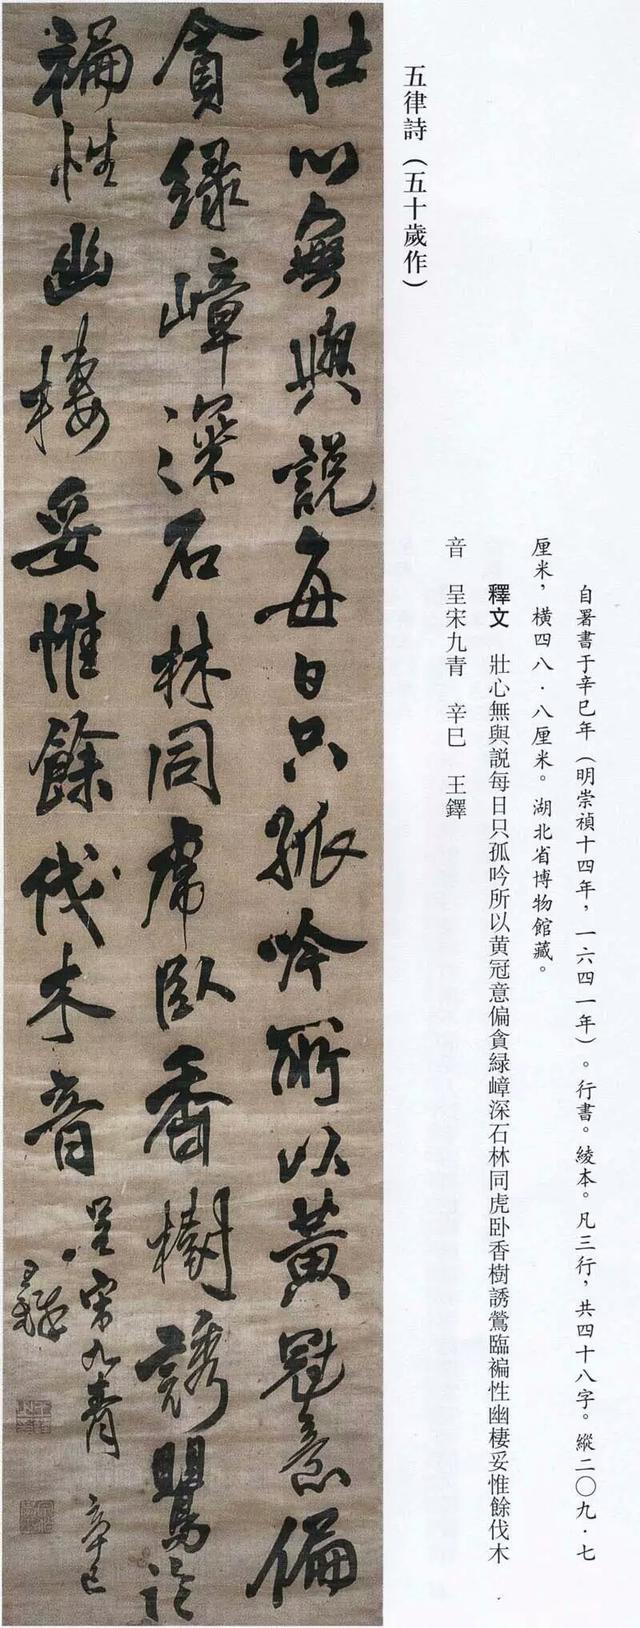 五律詩（五十歲作）
自署書于辛巳年（明崇禎十四年，一六四一年）。行書。綾本。凡三行，共四十八字。縱二〇九·七
厘米，橫四八·八厘米。湖北省博物館藏。
釋文 壯心無與説每日只孤吟所以黄冠意偏貪緑嶂深石林同虎卧香樹誘鶯臨褊性幽棲妥惟餘伐木
音 呈宋九青 辛巳 王鐸
壯心無與説每日只孤吟所以黃冠意偏
貪緑嶂深石林同虎臥香樹誘鶯臨
褊性幽棲妥惟餘伐木音 呈宋九青 辛巳
王鐸